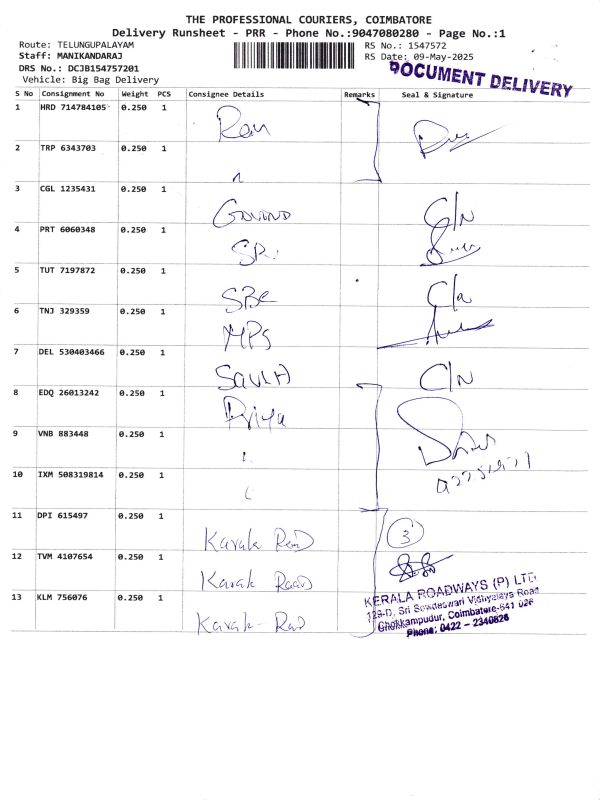 THE PROFESSIONAL COURIERS, COIMBATORE
Delivery Runsheet - PRR - Phone No.:9047080280 - Page No.:1
Route: TELUNGUPALAYAM RS No.: 1547572
Staff: MANIKANDARAJ RS Date: 09-May-2025
DRS No.: DCJB154757201
Vehicle: Big Bag Delivery
DOCUMENT DELIVERY
S No Consignment No Weight PCS Consignee Details Remarks Seal & Signature
1 HRD 714784105 0.250 1
2 TRP 6343703 0.250 1
3 CGL 1235431 0.250 1 Govind C/N
4 PRT 6060348 0.250 1 SRI
5 TUT 7197872 0.250 1 SBC
6 TNJ 329359 0.250 1 MPS
7 DEL 530403466 0.250 1 C/N
8 EDQ 26013242 0.250 1 Priya
9 VNB 883448 0.250 1
10 IXM 508319814 0.250 1
11 DPI 615497 0.250 1 Kavala 3
12 TVM 4107654 0.250 1 Kavala
13 KLM 756076 0.250 1 Kavala
KERALA ROADWAYS (P) LTD
129-D, Sri Sowdeswari Vidhyalaya Road
Chokkampudur, Coimbatore-641 026
Phone: 0422 - 2340826